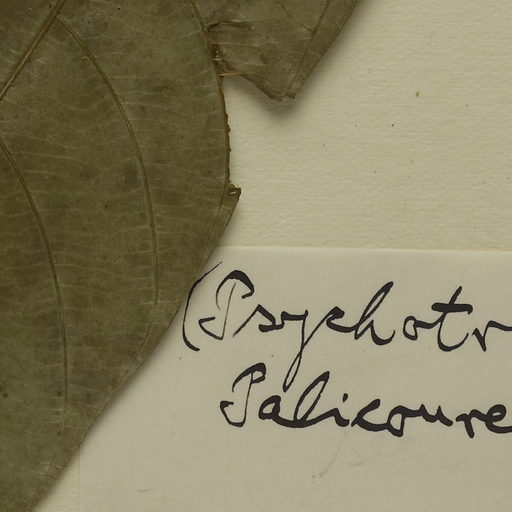 (Psychotr
Palicoure